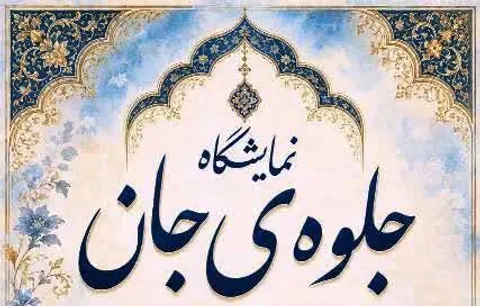 نمایشگاه
جلوه ی جان